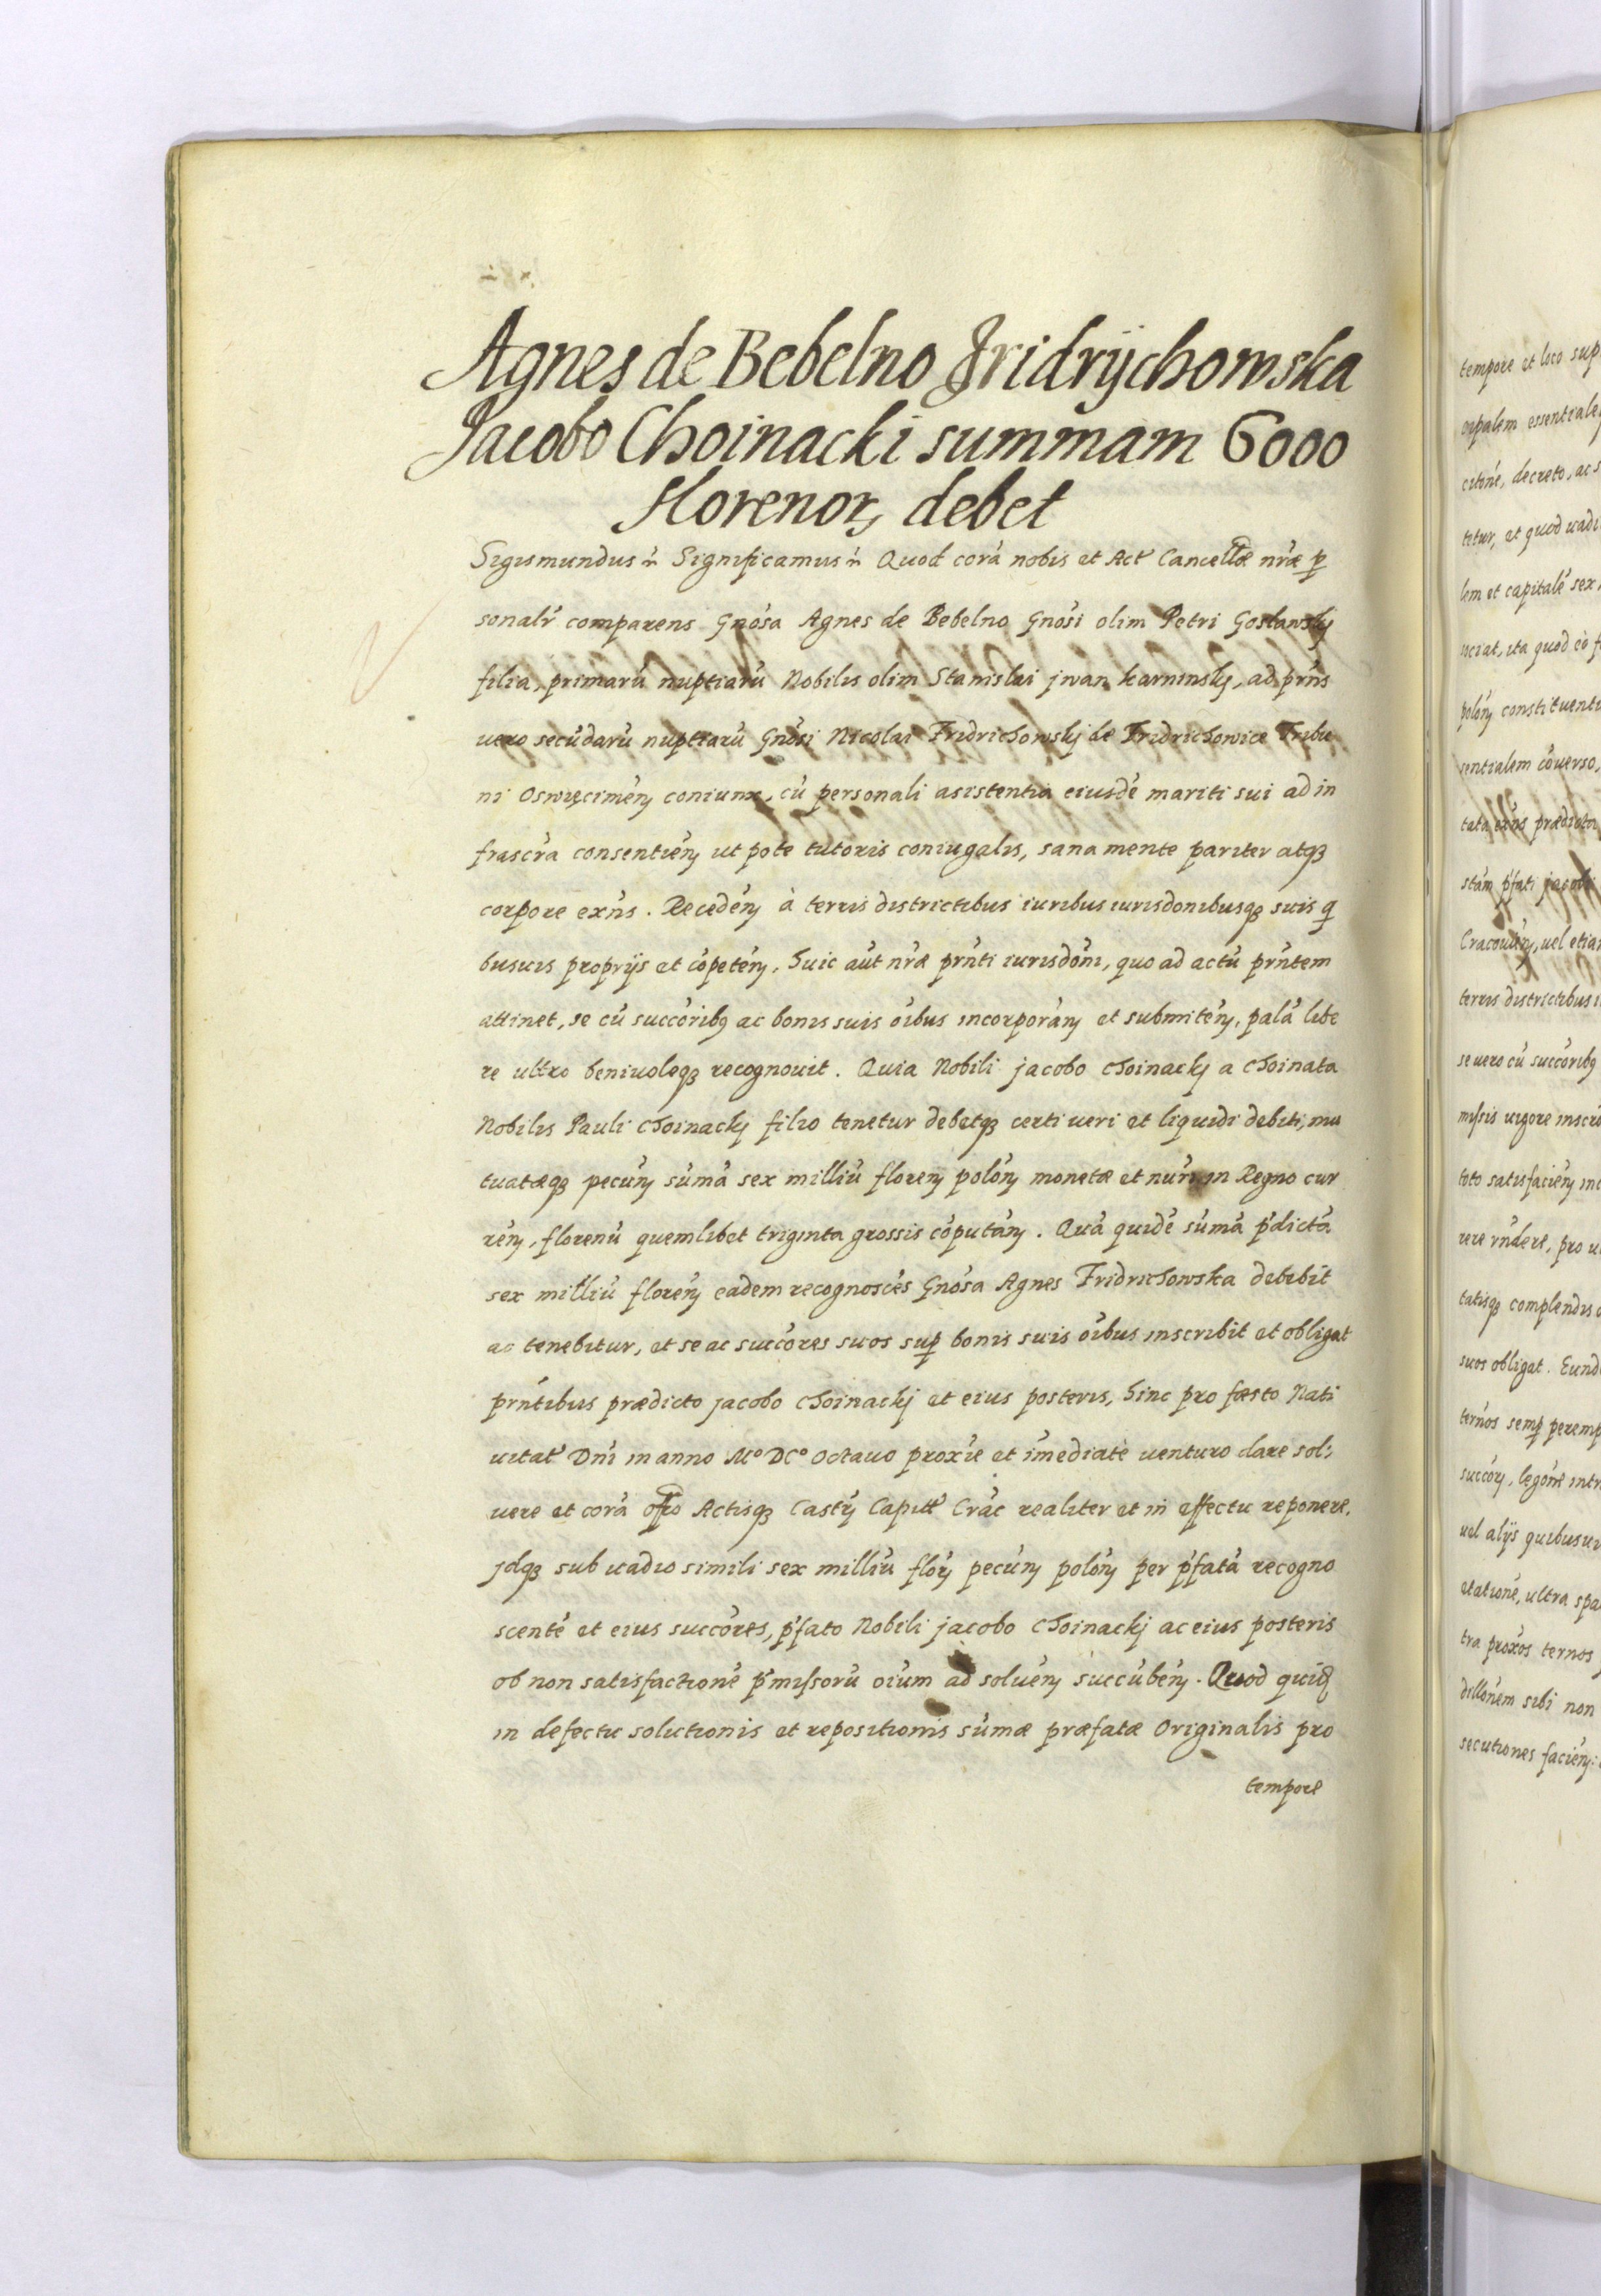 Agnes de Bebelno Fridrÿchowska
Jacobo Choinacki summam 6000
florenorꝝ debet
Sigismundus ẽ Significamus ẽ Quod corã nobis et Act' Cancellæ nr̃æ p
sonalr̃ comparens Gnõsa Agnes de Bebelno Gnõsi olim Petri Goslawskj
filia, primarũ nuptiarũ Nobilis olim Stanislai jwan karninskj, ad prñs
uero secũdarũ nuptiarũ Gnõsi Nicolai Fridrichowskj de Fridrichowice Tribu
ni Oswięcimeñ coniunx, cũ personali asistentia eiusdẽ mariti sui ad in
frascr̃a consentieñ ut pote tutoris coniugalis, sana mente pariter atqꝫ
corpore exñs. Recedeñ à terris districtibus iuribus iurisdonibusqꝫ suis q
busuis proprijs et cõpeteñ, huic aũt nr̃æ prñti iurisdõni, quo ad actũ prñtem
attinet, se cũ succõribꝫ ac bonis suis õibus incorporañ et submiteñ, palã libe
re ultro beniuoleqꝫ recognouit. Quia Nobili jacobo choinackj a choinata
Nobilis Pauli choinackj filio tenetur debetqꝫ certi ueri et liquidi debiti, mu
tuatæqꝫ pecuñ sũmã sex milliũ floreñ poloñ monetæ et nuñ in Regno cur
reñ, florenũ quemlibet triginta grossis cõputañ. Quã quidẽ sũmã p̃dictã
sex milliũ floreñ eadem recognoscẽs Gnõsa Agnes Fridrichowska debebit
ac tenebitur, et se ac succõres suos sup bonis suis õibus inscribit et obligat
prñtibus prædicto jacobo choinackj et eius posteris, hinc pro fæsto Nati
uitat' Dñi in anno Mº DCº octauo proxĩe et im̃ediatè uenturo dare sol:
uere et corã offo Actisqꝫ Castr̃ Capitt' Crac̃ realiter et in effectu reponere.
jdqꝫ sub uadio simili sex milliũ flor̃ pecuñ poloñ per p̃fatã recogno
scentẽ et eius succõres, p̃fato Nobili jacobo choinackj ac eius posteris
ob non satisfactionẽ p̃missorũ oĩum ad solueñ succũbeñ. Quod quidẽ
in defectu solutionis et repositionis sũmæ præfatæ Originalis pro
tempore
tempore et loco sup
citõne, decreto, ac s
tetur, et quod uadi
lem et capitalẽ sex
ciat, ita quod eò f
poloñ constituent
sentialem cõuerso,
tata exñs prædicto
stãm p̃fati jacobi
Cracouieñ, uel etia
terris districtibus i
se uero cũ succõribꝫ
missis uigore inscr
toto satisfacieñ in
tatisqꝫ complendis
suos obligat. Eund
ternos semp peremp
uel alijs quibusui
etationẽ, ultra spa
tra proxõs ternos
dillõnem sibi non
secutiones facieñ: